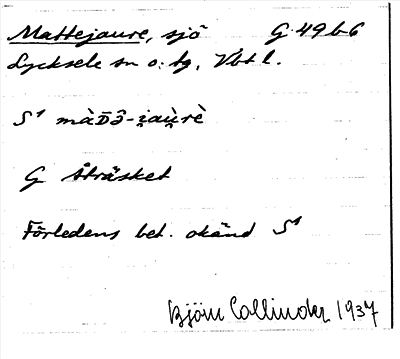 Mattejaure, sjö G 49 b 6
Lycksele sn o. tg, Vbt l.
S¹ màD̄ə̂-i̯au̯rè
G Åträsket
Förledens bet. okänd S¹
Björn Collinder 1937